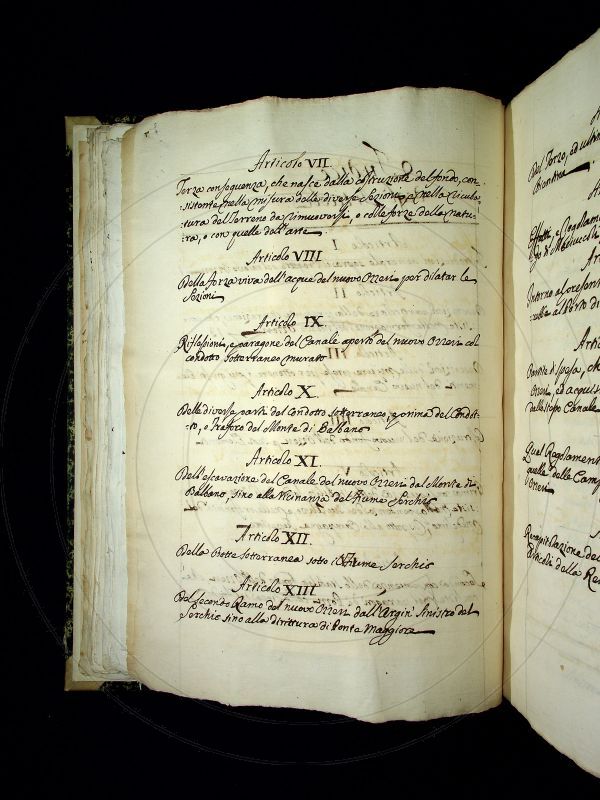 Articolo VII.
Terza conseguenza, che nasce dalla costruzione del fondo, con=
=sistente nella misura delle diverse Sezioni, e nella
=tura del Terreno da rimuoversi, o colle forze della natu=
=ra, o con quelle dell'arte
Articolo VIII
Della forza viva dell'acque del nuovo Ozzeri per dilatar le
Sezioni
Articolo IX.
Riflessioni, e paragone del Canale aperto del nuovo Ozzeri col
condotto sotterraneo murato
Articolo X.
Delle diverse parti del Condotto sotterraneo, e prima del Condot=
=to, o Traforo del Monte di Balbano
Articolo XI.
Dell'escavazione del Canale del nuovo Ozzeri dal Monte di
Balbano, fino alla Vicinanza del Fiume Serchio
Articolo XII.
Della Botte sotterranea sotto il Fiume Serchio
Articolo XIII
Del secondo Ramo del nuovo Ozzeri dall'Argin' sinistro del
Serchio fino alla dirittura di Ponte Maggiore
Del Terzo, ed ultimo
Bientina
Effetti, e Regolamen
Articolo
Intorno al
Articolo
spesa, che
Ozzeri, ed
dell'istesso Canale
Qual Regolamento
quelle delle Camp
Ozzeri
Recapitolazione de
Articoli della Re